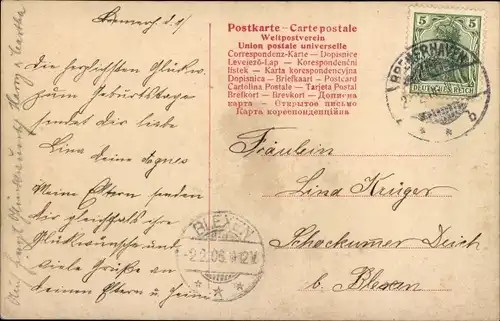 Die herzlichsten Glückw.
zum Geburtstage
sendet dir liebe
Lina deine Agnes
Meine Eltern senden
dir gleichfalls ihre
Glückwünsche und
viele Grüße an
deinen Eltern u
Postkarte – Carte postale
Weltpostverein
Union postale universelle
Correspondenz-Karte – Dopisnice
Levelező-Lap – Korespondenční
lístek – Karta korespondencyjna
Dopisnica – Briefkaart – Postcard
Cartolina Postale – Tarjeta Postal
Brefkort – Brevkort – Дописна
карта – Открытое письмо
Карта корреспонденційна
5 5
DEUTSCHES REICH
BREMERHAVEN
Fräulein
Lina Krüger
Schockumer Deich
b. Blexen
BLEXEN
2.2.06.